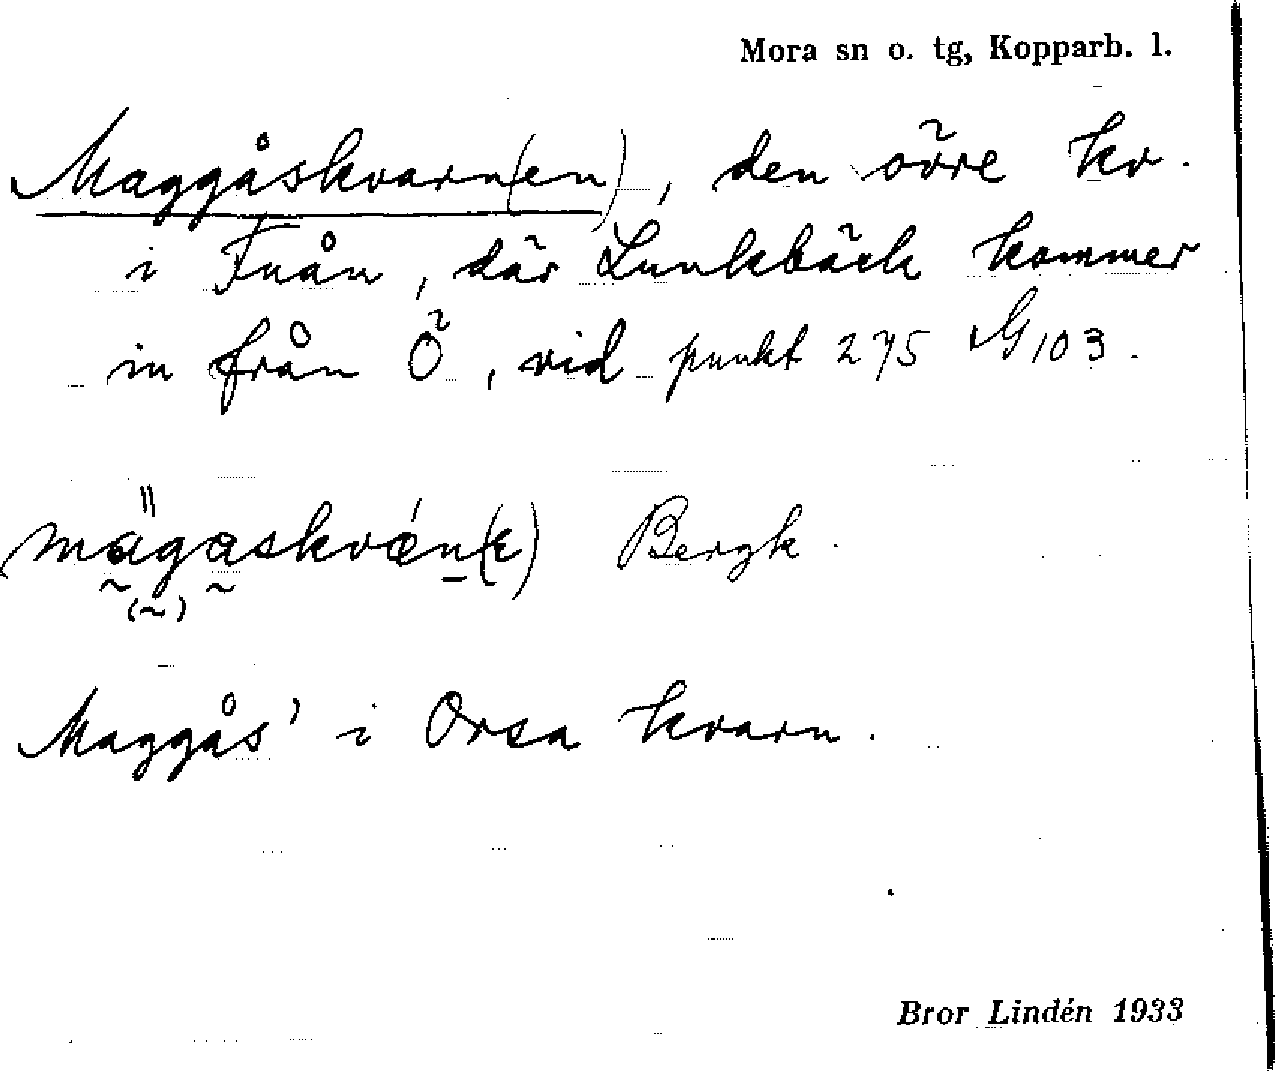 Mora sn o. tg, Kopparb. l.
Maggåskvarn(en), den övre kv.
i Fuån, där Lunkbäck kommer
in från Ö, vid punkt 275 G 103.
Bergk.
Maggås' i Orsa kvarn.
Bror Lindén 1933